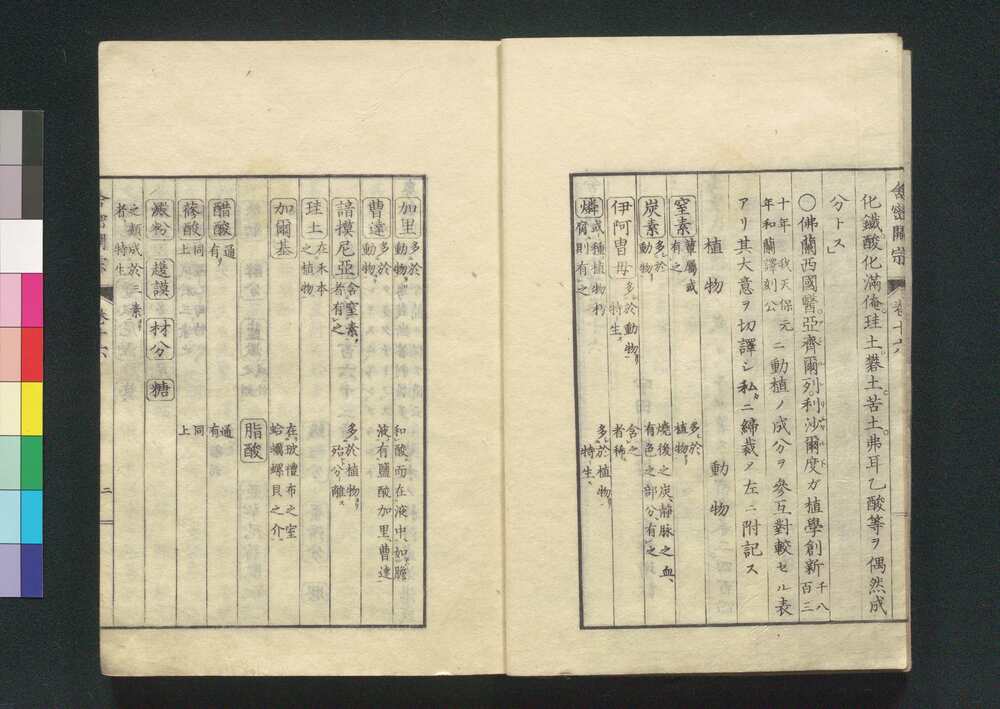 化鐵酸化滿俺。珪土。礬土。苦土。弗耳乙酸等ヲ偶然成
分トス」
○佛蘭西國醫亞齊爾列利沙爾度ガ植學創新千八百三
十年我天保元年和蘭譯刻公ニ動植ノ成分ヲ參互對較セル表
アリ其大意ヲ切譯シ私ニ締裁ノ左ニ附記ス
植物 動物
窒素 有之 多於植物
炭素 多於動物 燒後之炭、靜脉之血、有色之部分有之
伊阿胄母 多於動物 特生 含之者稀
燐 或種植物朽腐則有之 多於植物 特生
舍密開宗 卷十六
加里 多於動物 和酸而在液中、如膽液有鹽酸加里、曹達
曹達 多於動物
諳摸尼亞 含窒素者有之 多於植物 殆分離
珪土 在禾本之植物
加爾基 在玻璃布之室蛤蠣螺貝之介
脂酸
醋酸 通有 通有
蓚酸 同上 同上
澱粉 護謨 材分 糖
之類成於三素者特生
舍密開宗 卷十六 二